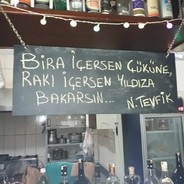 BİRA İÇERSEN ÇÜKÜNE,
RAKI İÇERSEN YILDIZA
BAKARSIN...
N. TEVFİK